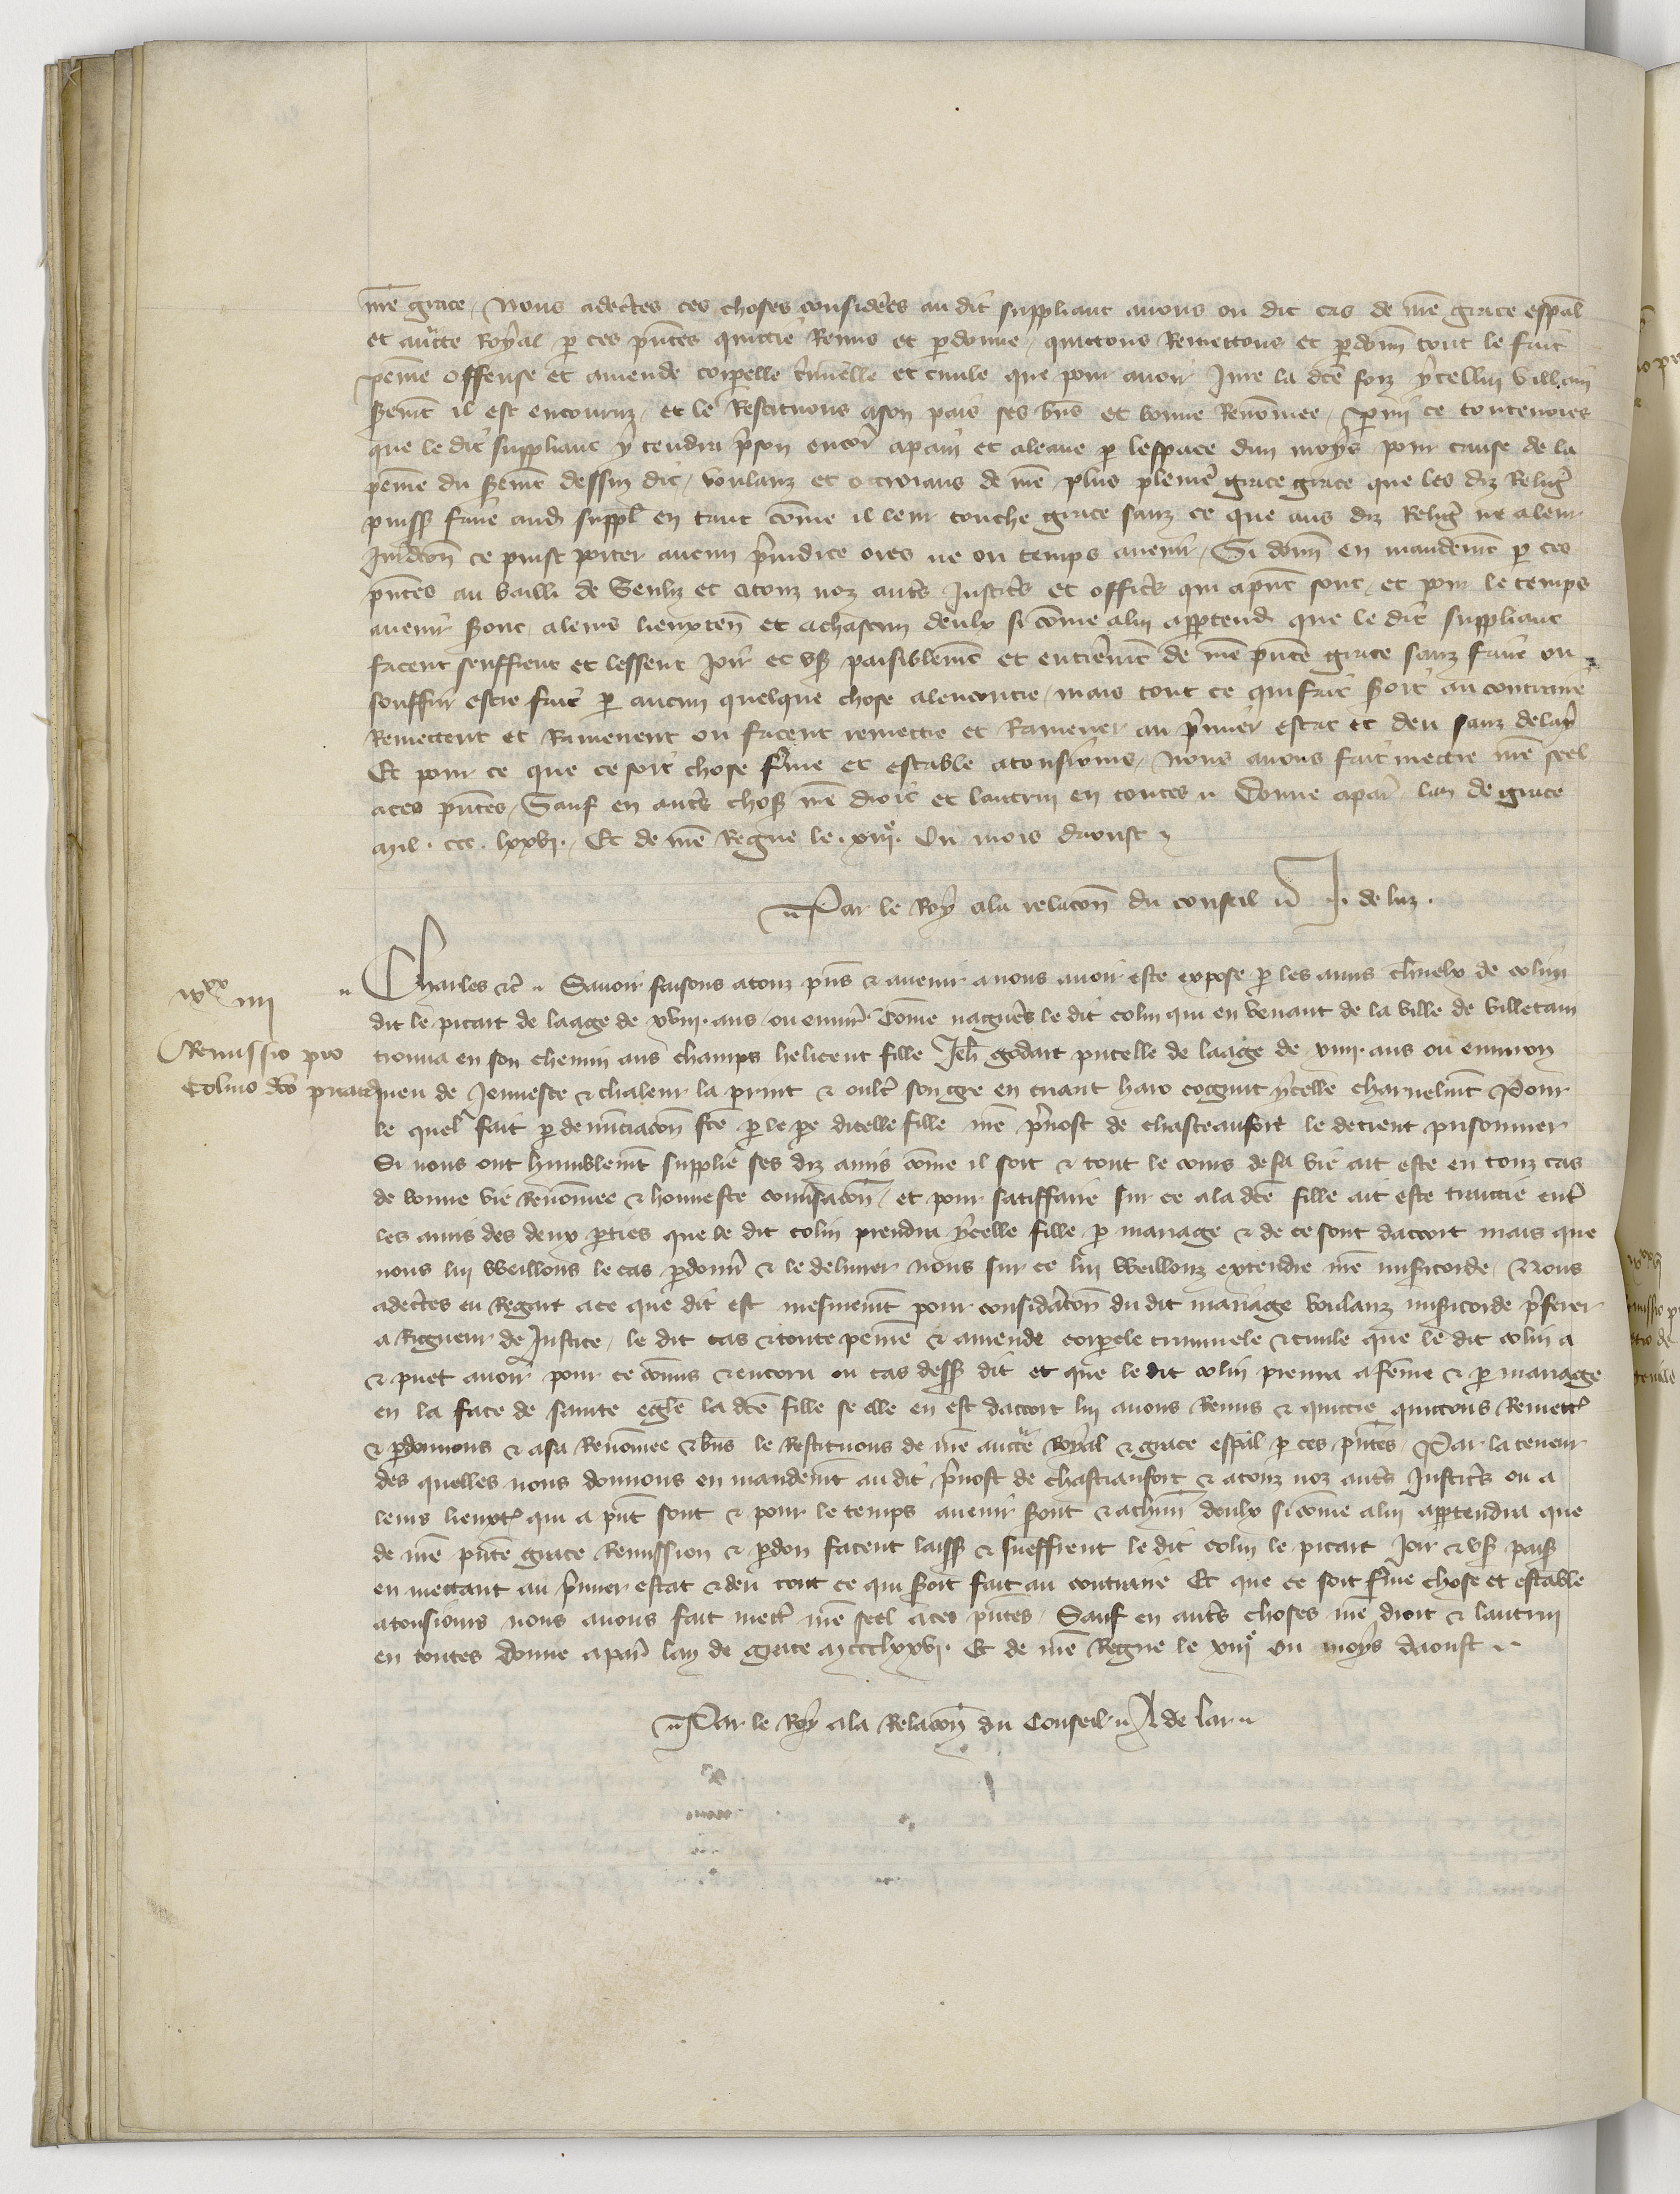 nr̃e grace, Nous adecẽtes ces choses considerees au dit suppliant avons ou dit cas de nr̃e grace esp̃al
et auc̃te Royal p ces p̃ntes quictie Remis et p̱donne, quictons Remettons et p̱donñ tout le fait
peine offense et amende corporelle c̃minelle et civile que pour avoir Jure la dc̃e foiz ycellui villain
serement il est encouruz, et le Restituons a son pais ses bñs et bonne Renõmee, p̱mi ce toutevoies
que le dit suppliant y tendra p̃son encor apain et aleaue p̱ lespace dun moys pour cause de la
peine du serem̃t dessus dit, voulanz et octroians de nr̃e plus pleniere grace grace que les diz Religˀ
puissˀ faire audˀ supplˀ en tant cõme il leur touche grace sanz ce que aus diz Religˀ ne a leur
Juridc̃on ce puist porter aucun p̃judice ores ne ou temps avenir, Si donñ en mandem̃t p̱ ces
p̃ntes au bailli de Senliz et a touz noz aut̃s Justicˀs et officˀs qui a p̃nt sont, et pour le temps
avenir seront, a leurs lieuxteñ et a chascun deulx si cõme a lui app̱tendˀ que le dit suppliant
facent seuffrent et lessent Joir et usˀ paisiblem̃t et entierem̃t de nr̃e p̃nte grace sanz faire ou
souffrir estre fait p̱ aucun quelque chose alencontre, mais tout ce qui fait seroit au contraire
Remettent et Ramenent ou facent remettre et Ramener au p̃mier estat et deu sanz delay
Et pour ce que ce soit chose ferme et estable a tousiours, Nous avons fait mettre nr̃e seel
a ces p̃ntes, Sauf en aut̃s chosˀ nr̃e droit et lautrui en toutes Donne a parˀ lan de grace
mil. ccc. lxxvj., Et de nr̃e Regne le .xiijᵉ. Ou mois daoust
Par le Roy a la relacõn du conseil J. de luz.
Charles ⁊c̃ Savoir faisons a touz p̃ns ⁊ avenir a nous avoir este expose p̱ les amis charnelx de colin
dit le picart de laage de xviij. ans ou envirˀ. Cõme nagueres le dit colin qui en venant de la ville de villetain
trouva en son chemin aus champs helicent fille Jehˀ godart pucelle de laage de viij. ans ou environ
meu de Jeunesce ⁊ chaleur la print ⁊ oultˀ son gre en criant haro cognut ycelle charnelm̃t Pour
le quel fait p̱ denunciacõn fc̃e p̱ le pe dicelle fille nr̃e p̃vost de chasteaufort le detient prisonnier
Si nous ont humblem̃t supplie ses diz amis cõme il soit ⁊ tout le cours de sa vie ait este en touz cas
de bonne vie Renõmee ⁊ honneste conv̂sacõn, et pour satiffaire sur ce a la dc̃e fille ait este traictie entˀ
les amis des deux p̱ties que le dit colin prendra ycelle fille p̱ mariage ⁊ de ce sont dacort mais que
nous lui veillons le cas p̱donñ ⁊ le delivrer Nous sur ce lui veillonz extendre nr̃e misericorde, Nous
adecẽtes eu Regart a ce que dit est mesmem̃t pour consideracõn du dit mariage voulanz mis̃icorde p̃ferer
a Rigueur de Justice, le dit cas ⁊ toute peine ⁊ amende corporele criminele ⁊ civile que le dit colin a
⁊ puet avoir pour ce cõmis ⁊ encoru ou cas dessˀ dit et que le dit colin prenra a fẽme ⁊ p̱ mariage
en la face de sainte eglˀe la dc̃e fille se elle en est dacort lui avons Remis ⁊ quictie quictons Remettˀ
⁊ p̱donnons ⁊ a sa Renõmee ⁊ bñs le Restituons de nr̃e auc̃te Royal ⁊ grace esp̃al p̱ ces p̃ntes, Par la teneur
des quelles nous donnons en mandem̃t au dit p̃vost de chastiaufort ⁊ a touz noz aut̃s Justicˀs ou a
leurs lieuxtˀ qui a p̃nt sont ⁊ pour le temps avenir seront ⁊ a chun̄ deulx si cõme a lui app̱tendra que
de nr̃e p̃nte grace Remission ⁊ p̱don facent laissˀ ⁊ sueffrent le dit colin le picart Joir ⁊ usˀ paisˀ
en mettant au p̃mier estat ⁊ deu tout ce qui seroit fait au contraire Et que ce soit ferme chose et estable
a tousiours nous avons fait mettˀ nr̃e seel a ces p̃ntes, Sauf en aut̃s choses nr̃e droit ⁊ lautrui
en toutes Donne a parˀ lan de grace mccclxxvj. Et de nr̃e Regne le xiijᵉ ou moys daoust
Par le Roy a la Relacõn du Conseil A de lar
Remissio pro
Colino dc̃o picart